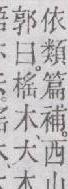 依類篇補。西山
郭曰。榣木大木